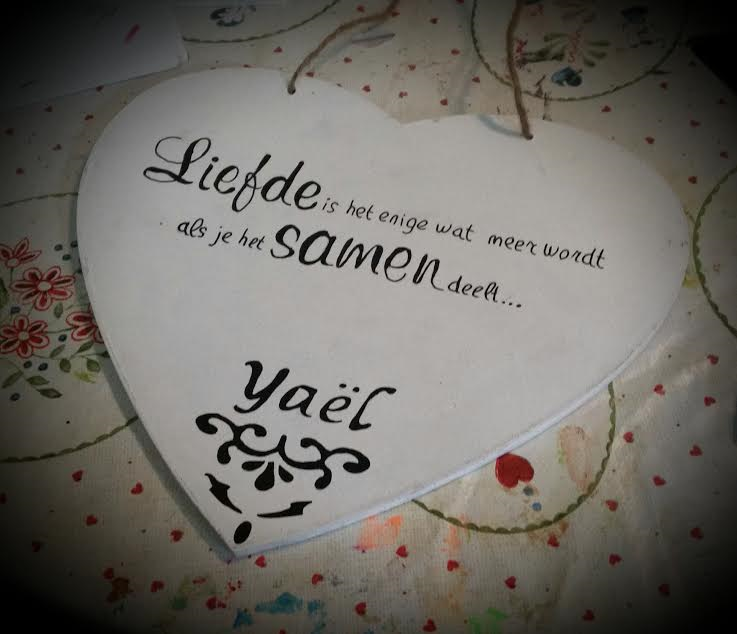 Liefde is het enige wat meer wordt
als je het samen deelt...
Yaël